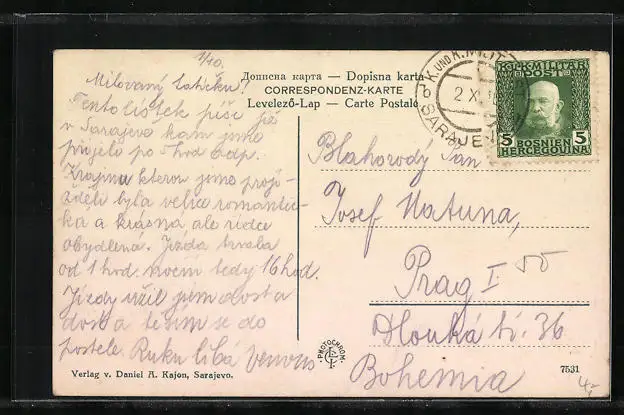 1/10.
Milovaný tatíčku!
Tento lístek píše již
v Sarajevo kam jsme
přijeli po 5 hod odp.
Krajina kterou jsme projí-
žděli byla velice romantic-
ká a krásná ale řídce
obydlená. Jízda trvala
od 1 hod. noční tedy 16 hod.
Jízdy užil jsem dost a
dost a těším se do
postele. Ruku líbá
Дописна карта — Dopisna karta
CORRESPONDENZ-KARTE
Levelező-Lap — Carte Postale
K. UND K. MILIT
2 X
SARAJE
K.U.K. MILITÄR
POST
5 5
BOSNIEN
HERCEGOVINA
Blahorodý Pan
Josef
Prag I
Dlouhá tř. 36
Bohemia
PHOTOCHROM
Verlag v. Daniel A. Kajon, Sarajevo.
7531